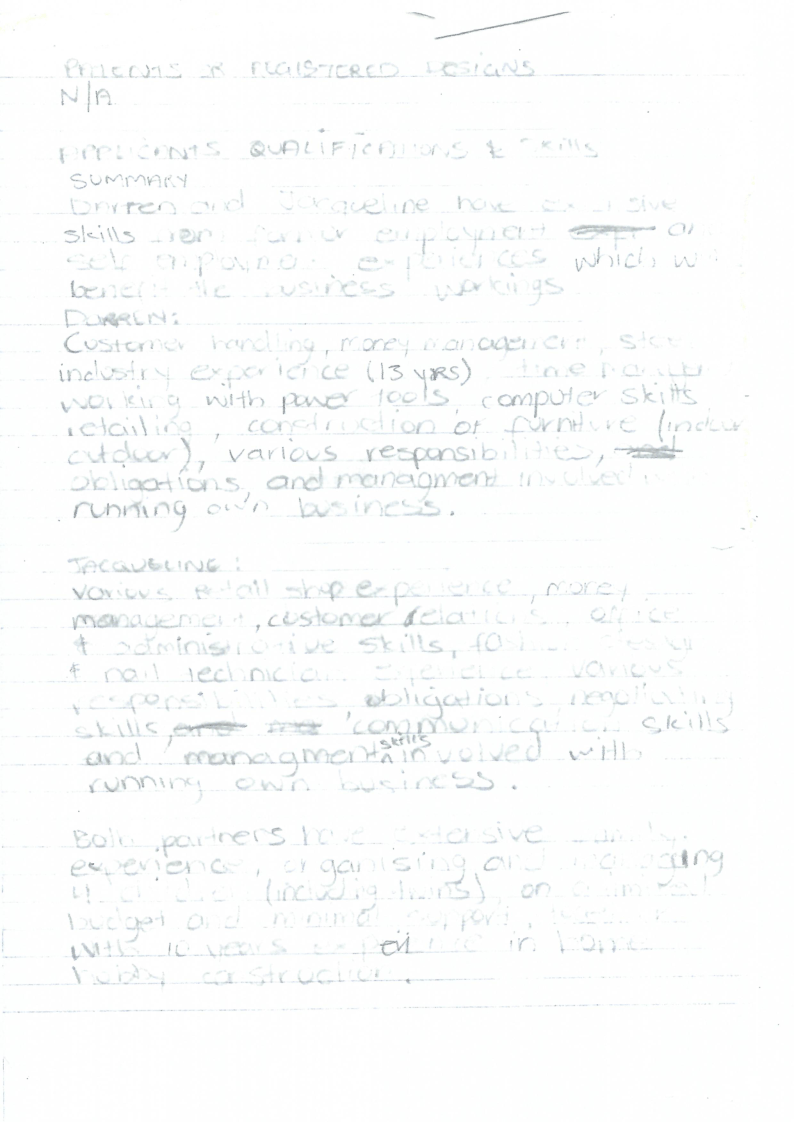 PATENTS & REGISTERED DESIGNS
N/A
APPLICANTS QUALIFICATIONS & Skills
SUMMARY
Darren and Jacqueline have
skills former employment
self employment experiences which
benefit the business workings
DARREN:
Customer handling, money management,
industry experience (13 YRS) time
working with power tools, computer skills
retailing, construction of furniture (indoor
outdoor), various responsibilities,
obligations, and managment involved
running own business.
JACQUELINE:
various retail shop experience, money
management, customer relations office
& administrative skills,
& nail technician experience various
responsibilities obligations negotiating
skills, communication skills
and managment skills involved with
running own business.
Both partners have extensive
experience, organising and managing
4 children (including twins), on a limited
budget and minimal support,
with 10 years experience in home
hobby construction.